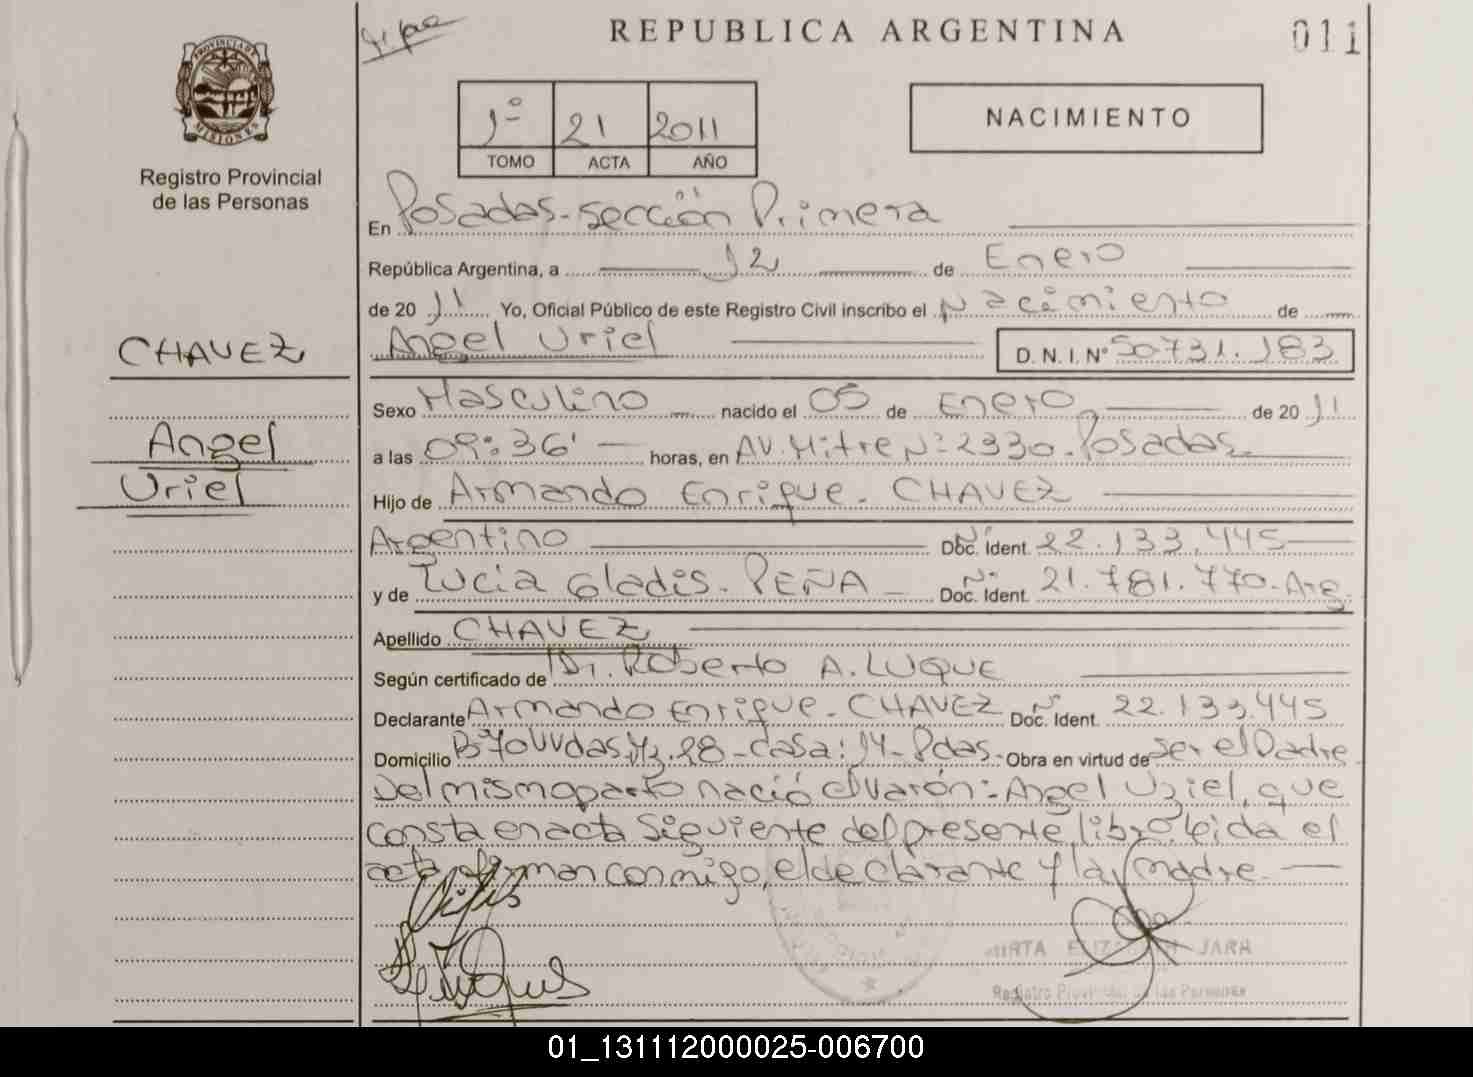 REPUBLICA ARGENTINA
011
PROVINCIA DE MISIONES
Registro Provincial
de las Personas
1º 21 2011
TOMO ACTA AÑO
NACIMIENTO
En Posadas-sección Primera
República Argentina, a 12 de Enero
de 2011 Yo, Oficial Público de este Registro Civil inscribo el Nacimiento de
CHAVEZ
Angel Uriel D.N.I.Nº 50731.183
Sexo Masculino nacido el 05 de Enero de 2011
Angel
a las 09:36' horas, en AV. Mitre Nº 2330. Posadas
Uriel
Hijo de Armando Enrique. CHAVEZ
Argentino Doc. Ident. Nº 22.133.445
y de Lucia Gladis. PEÑA Doc. Ident. Nº 21.781.770-Arg.
Apellido CHAVEZ
Según certificado de Dr. Roberto A. LUQUE
Declarante Armando Enrique. CHAVEZ Doc. Ident. Nº 22.133.445
Domicilio Bº 70 VVdas. Mz. 28-casa: 14-Pdas.- Obra en virtud de ser el Padre
Del mismo parto nació el varón:-Angel Uziel, que
consta en acta siguiente del presente libro. Leida el
acta firman conmigo, el declarante y la madre.
MIRTA ELIZABETH JARA
Registro Provincial de las Personas
01_131112000025-006700